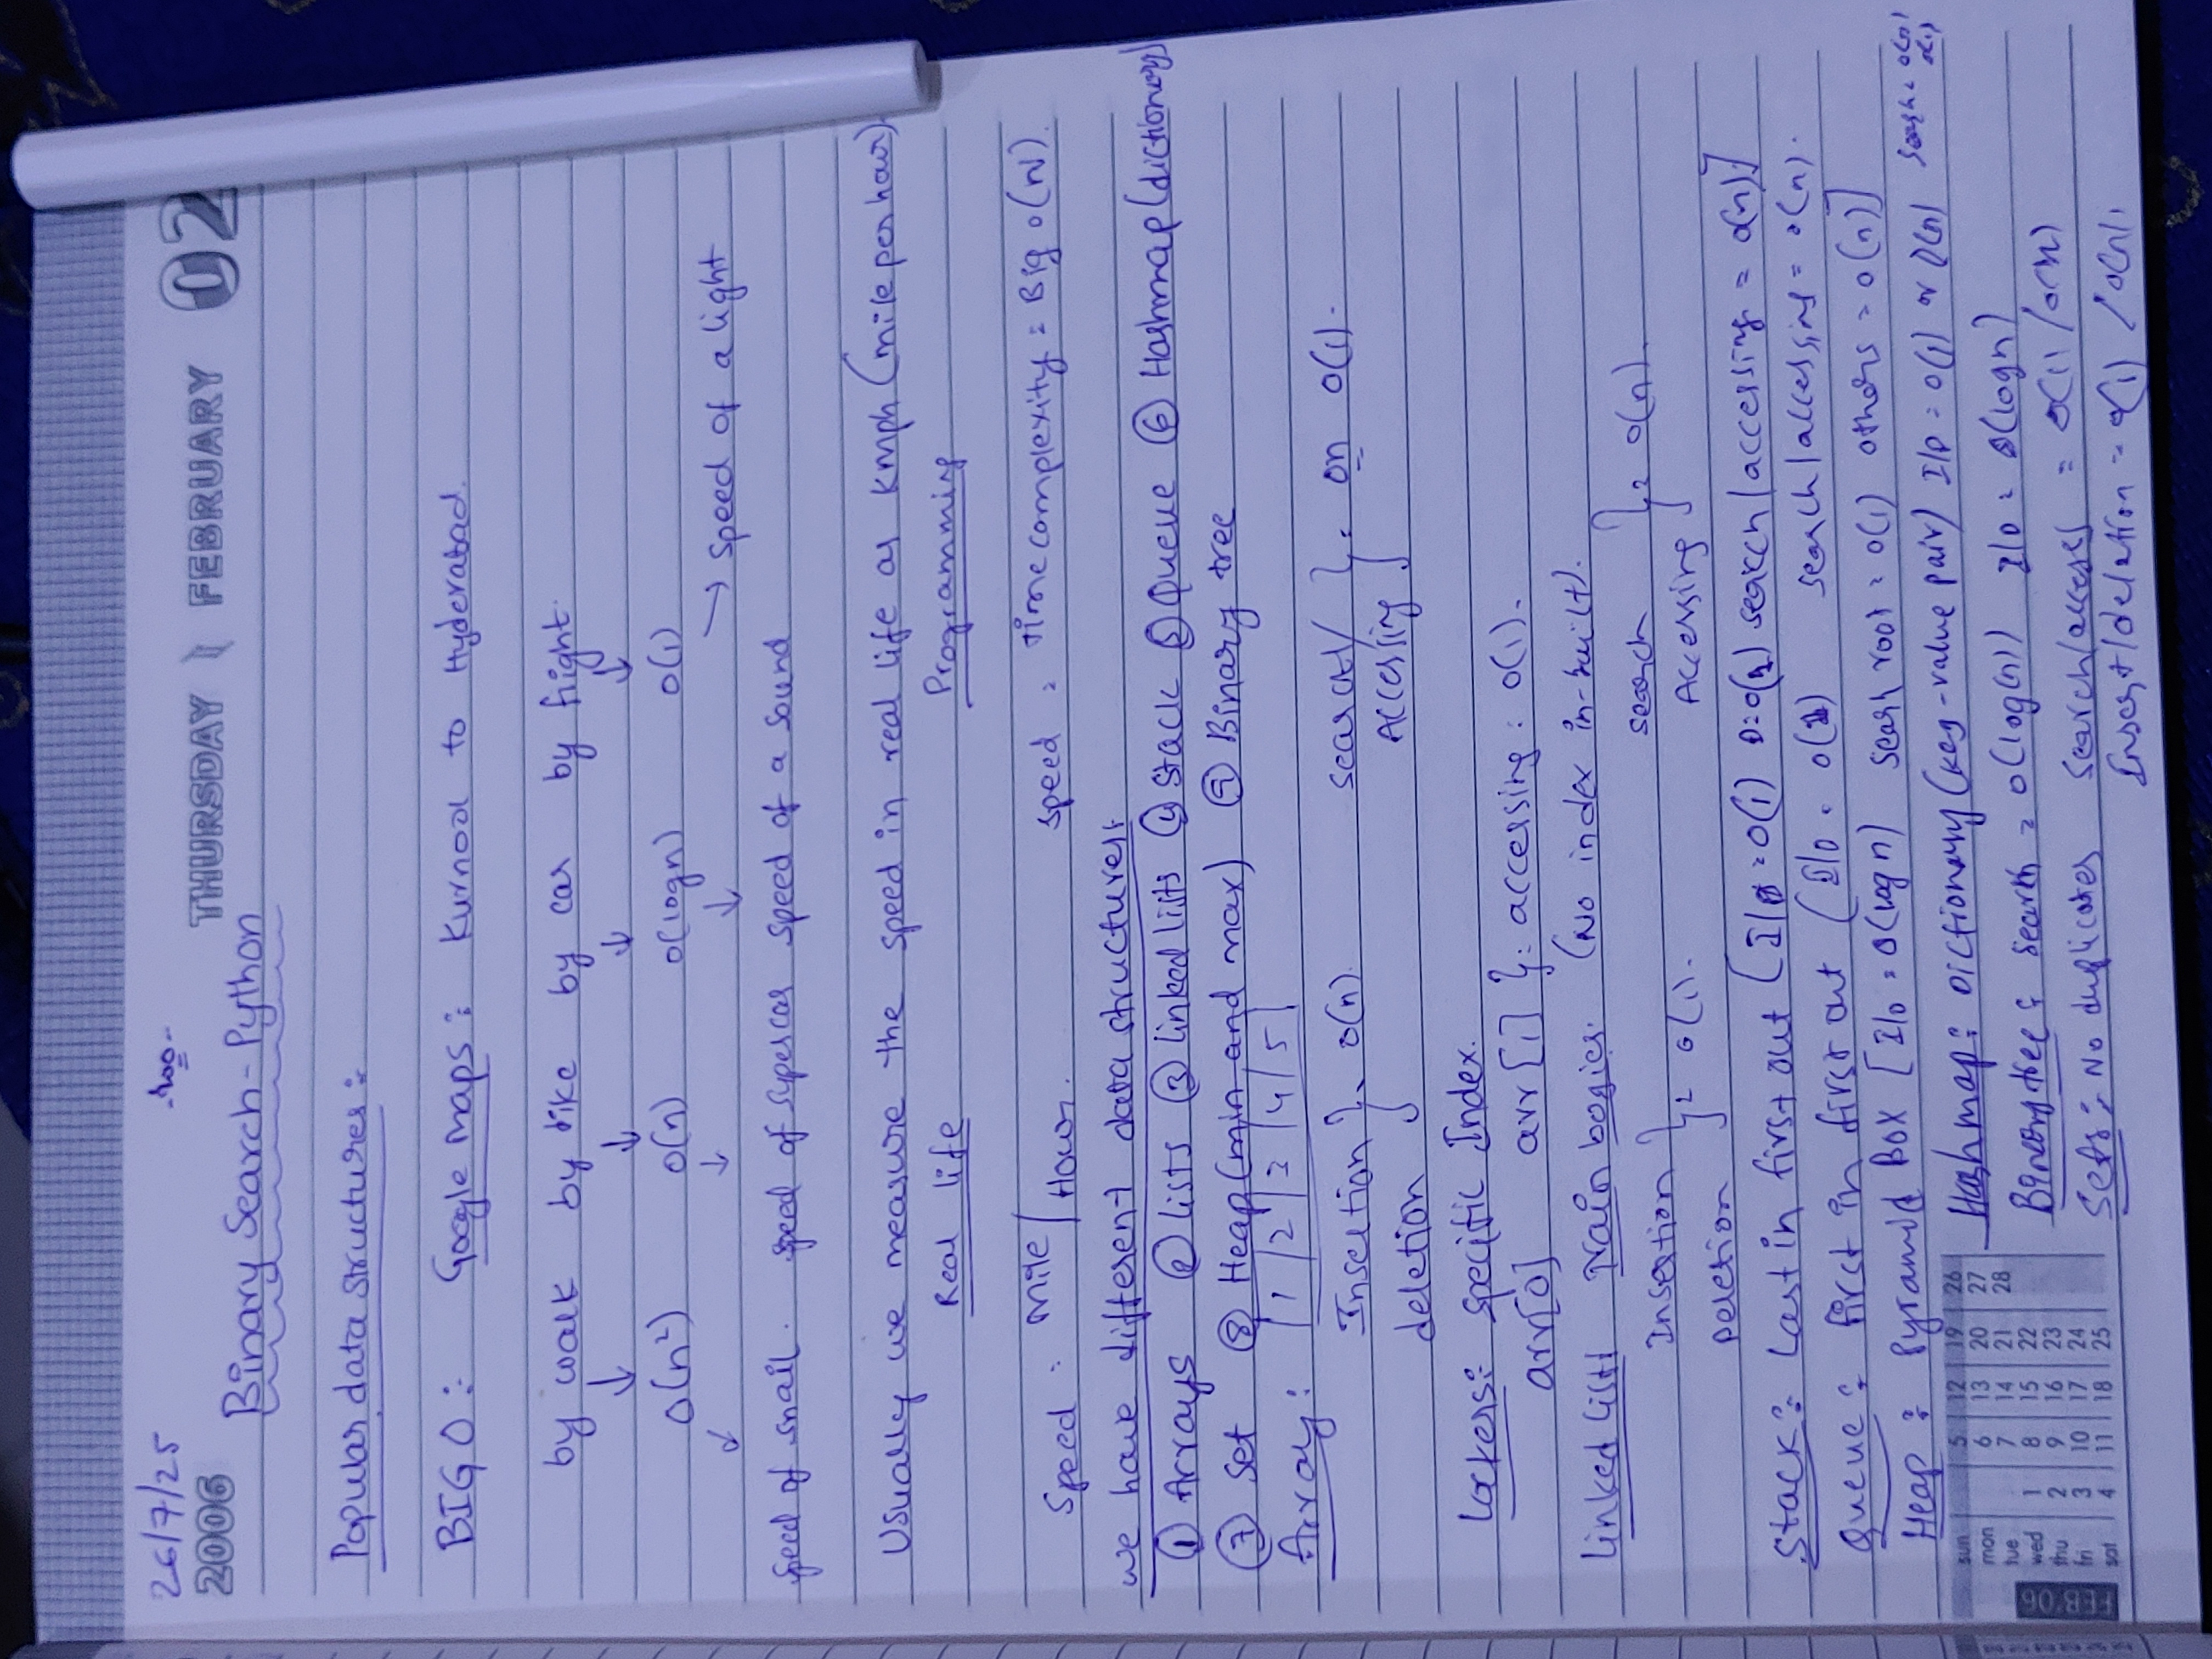 26/7/25
2006 THURSDAY FEBRUARY 02
Binary Search - Python
Popular data structures :
BIG O : Google maps : Kurnool to Hyderabad.
by walk by bike by car by flight
↓ ↓ ↓ ↓
O(n²) O(n) O(logn) O(1)
↓ ↓ ↓ → speed of a light
speed of snail. speed of supercar speed of a sound
Usually we measure the speed in real life as kmph (mile per hour).
Real life Programming
Speed : Mile / Hour. speed : time complexity = Big O(N).
we have different data structures:
① Arrays ② lists ③ linked lists ④ stack ⑤ Queue ⑥ Hashmap (dictionary)
⑦ Set ⑧ Heap (min and max) ⑨ Binary tree
Array : | 1 | 2 | 3 | 4 | 5 |
Insertion } O(n). search/ } = on O(1).
deletion Accessing
Lockers : specific Index.
arr[0] arr[1] } : accessing : O(1).
linked list train bogies. (No index in-built).
Insertion } = O(1). search } = O(n).
Deletion Accessing
Stack : Last in first out [I/ = O(1) D = O(1) search/accessing = O(n)]
Queue : first in first out (I/D = O(1) search/accessing = O(n).
Heap : Pyramid Box [I/D = O(log n) search root = O(1) others = O(n)]
Hashmap : Dictionary (key-value pair) I/D = O(1) or O(n) search = O(n)
O(1)
Binary tree : search = O(log(n)) I/D = O(logn)
Sets : No duplicates search/access = O(1) / O(n)
Insert/deletion = O(1) / O(n)
FEB'06
sun 5 12 19 26
mon 6 13 20 27
tue 7 14 21 28
wed 1 8 15 22
thu 2 9 16 23
fri 3 10 17 24
sat 4 11 18 25